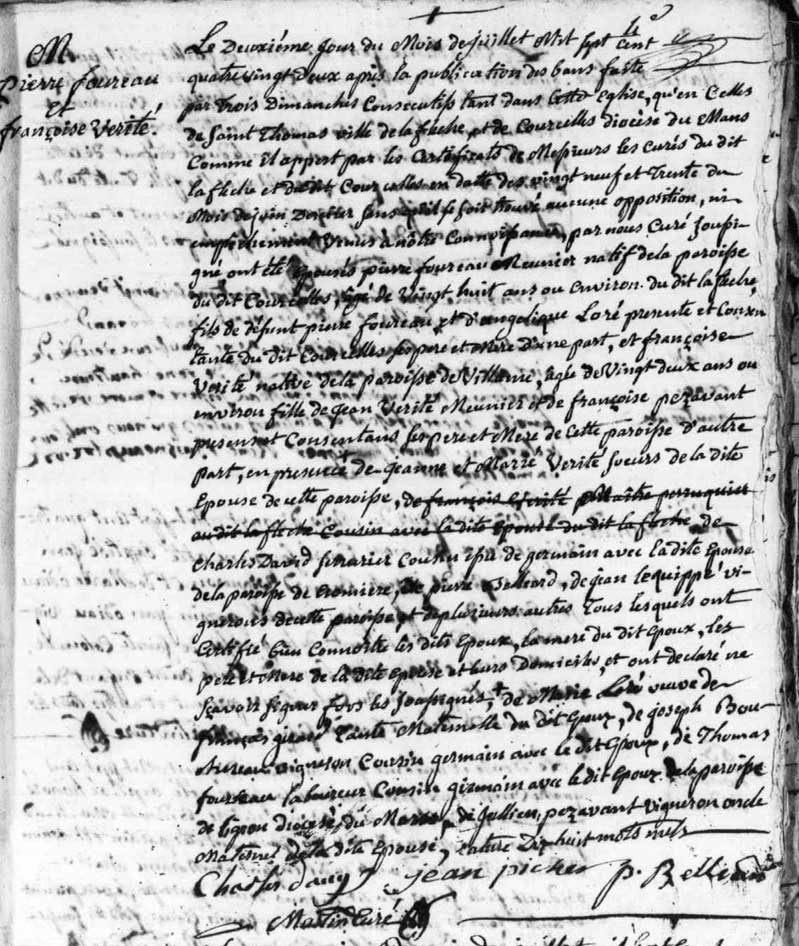 M
Pierre foureau
et
françoise verité.
Le Deuxiéme jour du Mois de juillet Mil sept Cent
quatre vingt Deux apres la publication des bans faite
par Trois Dimanches Consecutifs tant dans Cette Eglise, qu'en Celles
de Saint Thomas ville de la fléche et de Courcelles diocèse du Mans
Comme il appert par les Certificats de Messieurs les Curés du dit
la fleche et du dit Courcelles en datte des vingt neuf et Trente du
Mois de juin Dernier sans qu'il se soit trouvé aucune opposition, ni
empêchement venus à nôtre Connoissance, par nous Curé soussi-
gné ont été épousés pierre foureau Meunier natif de la paroisse
du dit Courcelles, âgé de Vingt huit ans ou environ du dit la fleche,
fils de défunt pierre foureau et d'angelique Loré presente et Consen
tante du dit Courcelles ses pere et Mere d'une part, et françoise
Verité native de la paroisse de , agée de Vingt deux ans ou
environ fille de jean Verité Meunier et de françoise pezavant
presens et Consentans ses pere et Mere de Cette paroisse d'autre
part, en presence de jeanne et Marie Verité soeurs de la dite
Epouse de cette paroisse, de françois Verité Maître perruquier
au dit la fleche Cousin avec la dite Epouse du dit la fleche de
Charles David Cousin issu de germain avec la dite Epouse
de la paroisse de , de pierre , de jean vi-
gnerons de cette paroisse et de plusieurs autres Tous lesquels ont
Certifié bien Connoitre les dits Epoux, la mere du dit Epoux, les
pere et Mere de la dite Epouse et leurs Domiciles, et ont declaré ne
sçavoir signer fors les soussignés, de Marie Loré veuve de
françois girard Tante Maternelle du dit Epoux, de joseph Bou-
vigneron Cousin germain avec le dit Epoux, de Thomas
foureau laboureur Cousin germain avec le dit Epoux de la paroisse
de ligron diocèse du Mans, de Jullien pezavant vigneron oncle
Maternel de la dite Epouse, raturé Dix huit mots nuls
Charles david jean
Martin Curé